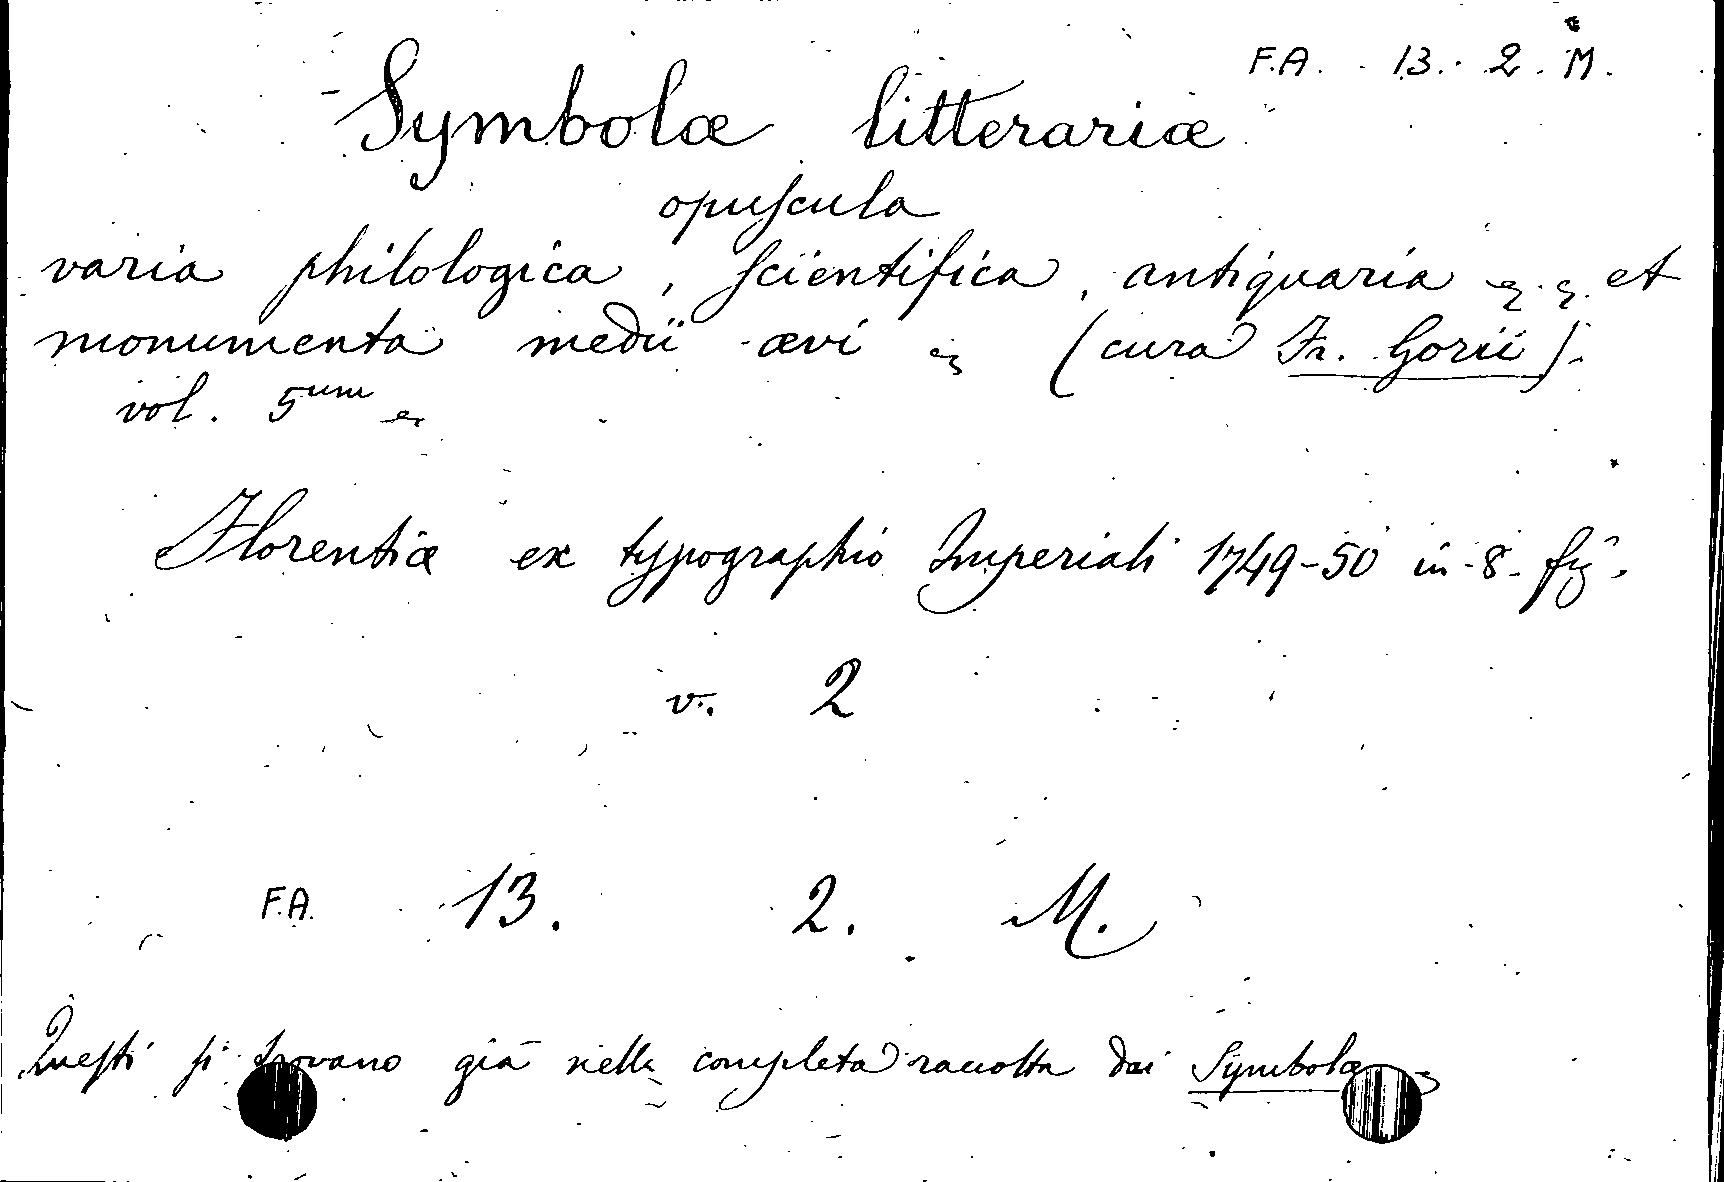 F.A. 13. 2. M.
Symbolæ litterariæ
opuscula
varia philologica, scientifica, antiquaria et
monumenta medii ævi (cura Fr. Gorii).
vol. 5um
Florentiæ ex typographio Imperiali 1749-50 in-8. fig.
v. 2
F.A. 13. 2. M.
Questi si trovano già nella completa raccolta dei Symbolæ